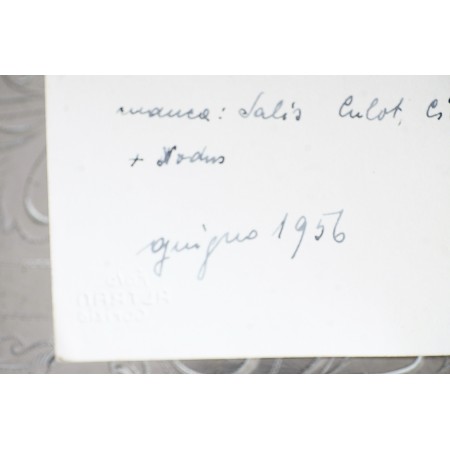 manca: Salis Culot, Ci
+ Nodus
guigno 1956